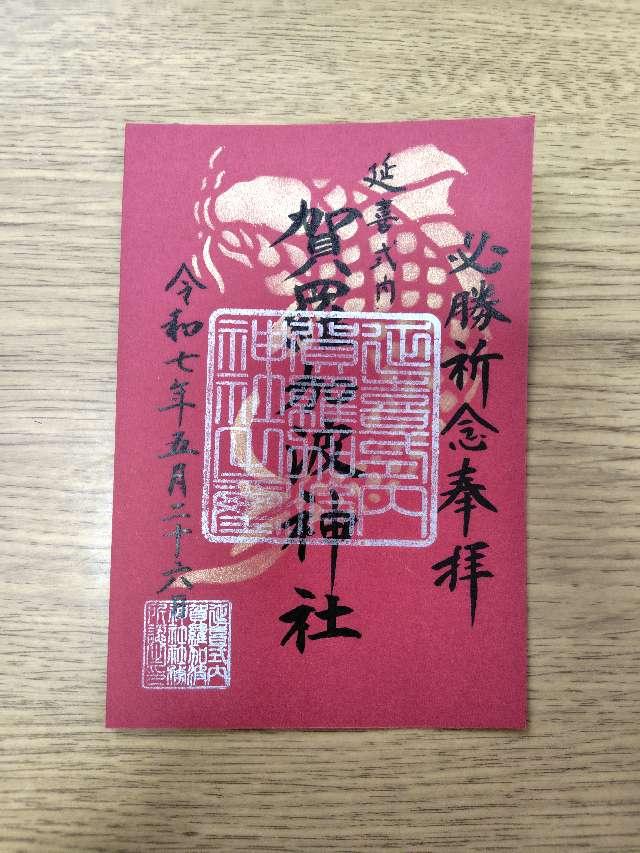 必勝祈念奉拝
延喜式内
賀羅加波神社
令和七年五月二十六日
延喜式内
賀羅加波
神社之
延喜式内
賀羅加波
神社